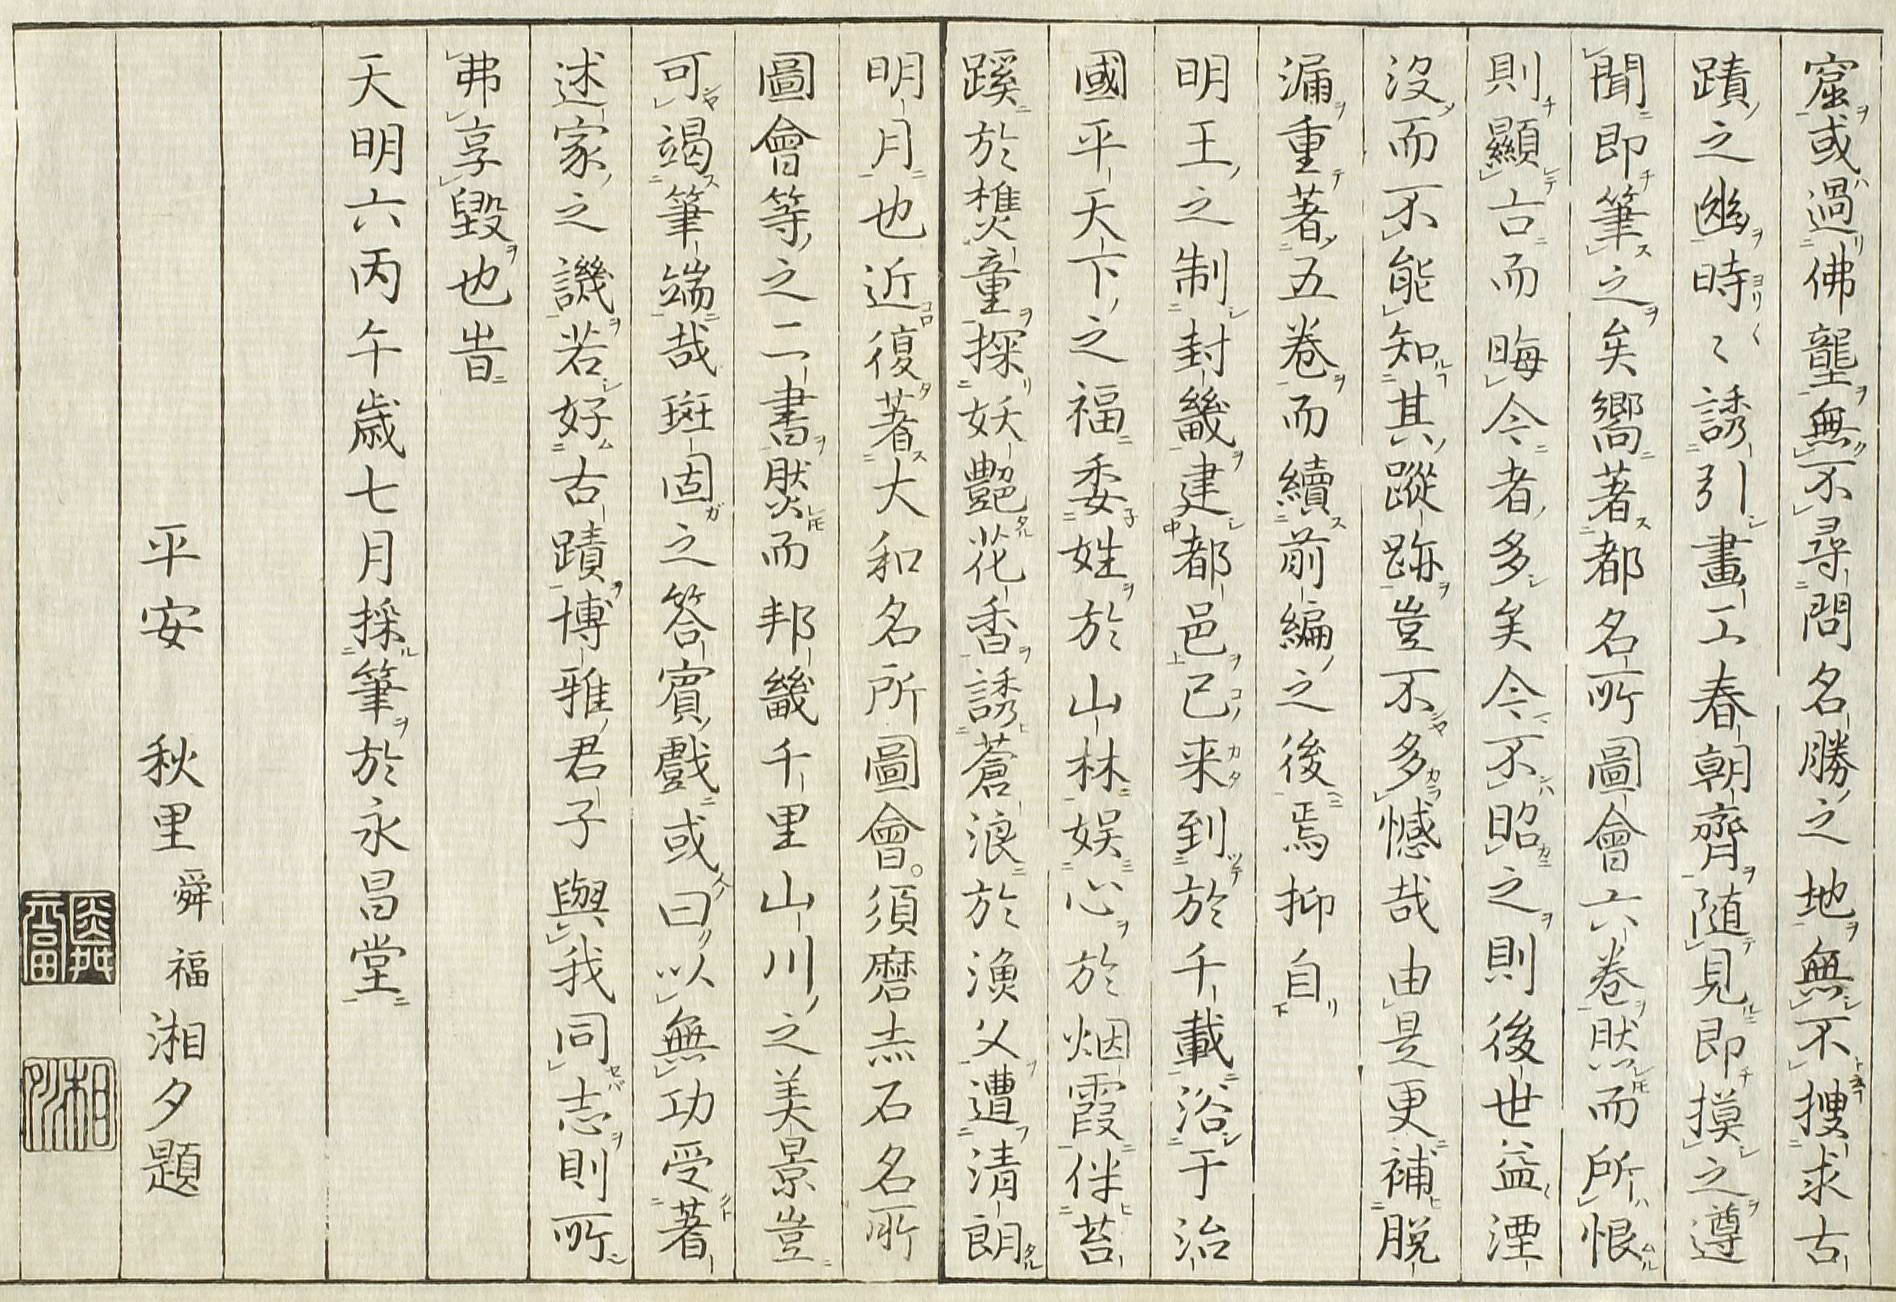 窟或過佛龕無不尋問名勝之地無不搜求古
蹟之幽時々誘引畫工春朝齊随見即摸之遵
聞即筆之矣嚮著都名所圖會六卷然而所恨
則顯古而晦今者多矣今不昭之則後世益湮
没而不能知其蹤跡豈不多憾哉由是更補脱
漏重著五卷而續前編之後焉抑自
明王之制封畿建都邑已来到於千載浴于治
國平天下之福委姓於山林娯心於烟霞伴苔
蹊於樵童探妖艷花香誘蒼浪於漁父遭清朗
明月也近復著大和名所圖會。須磨赤石名所
圖會等之二書然而邦畿千里山川之美景豈
可竭筆端哉斑固之答賓戲或曰以無功受著
述家之譏若好古蹟博雅君子與我同志則所
弗享毀也旹
天明六丙午歳七月採筆於永昌堂
平安 秋里舜福湘夕題